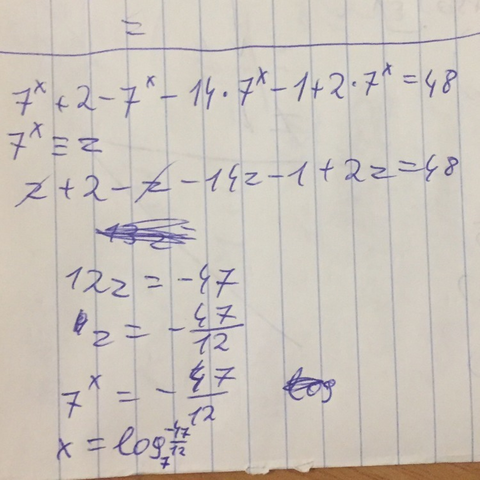 =
7^x + 2 - 7^x - 14 · 7^x - 1 + 2 · 7^x = 48
7^x ≡ z
z + 2 - z - 14z - 1 + 2z = 48
12z = -47
z = -47/12
7^x = -47/12
x = log_7 -47/12